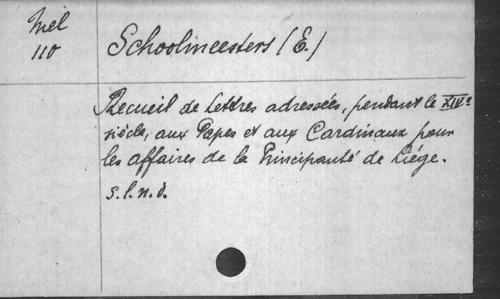 Mél
110
Schoolmeesters (E.)
Recueil de Lettres adressées, pendant le XIVe
siècle, aux Papes et aux Cardinaux pour
les affaires de la Principauté de Liége.
s.l.n.d.